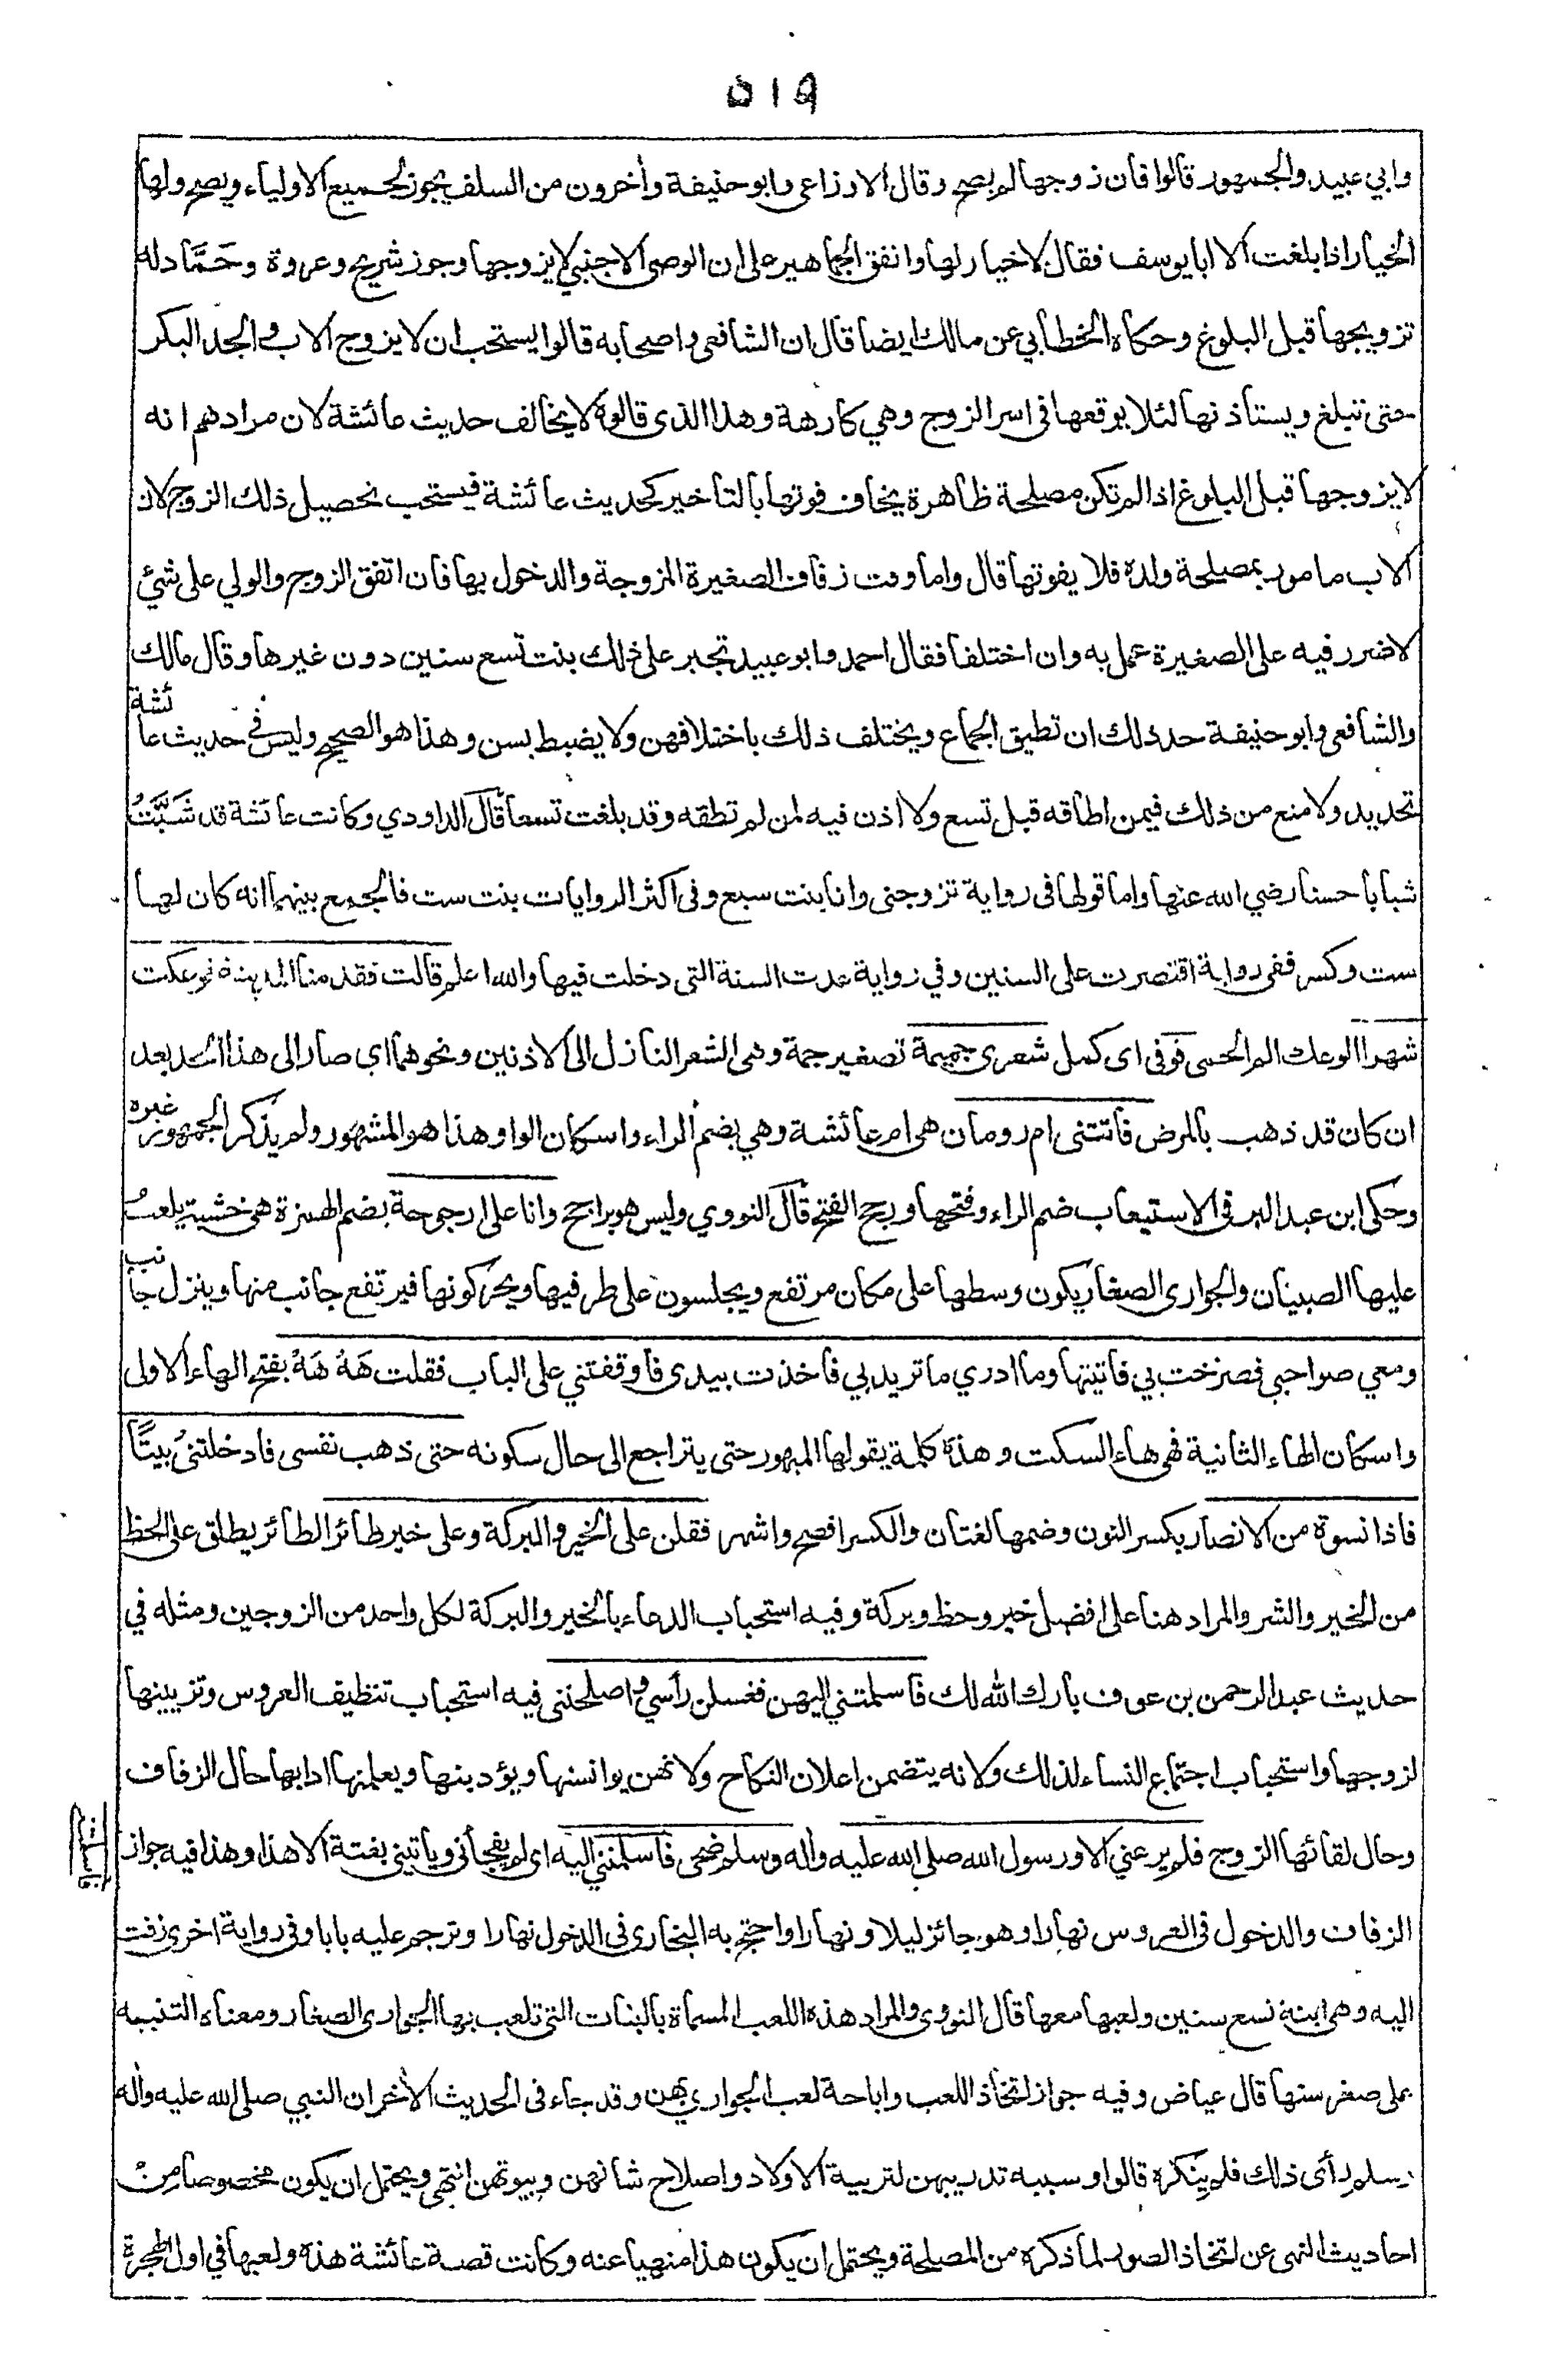 ٥١٩
وابي عبيد والجمهور قالوا فان زوجها لم يصح وقال الاوزاعي وابو حنيفة وأخرون من السلف يجوز لجميع الاولياء ويصح ولها
الخيار اذا بلغت الا ابا يوسف فقال لا خيار لها واتفق الجماهير على ان الوصى الاجنبي لا يزوجها وجوز شريح وعروة وحَمَّاد له
تزويجها قبل البلوغ وحكاه الخطابي عن مالك ايضا قال ان الشافعى واصحابه قالوا يستحب ان لا يزوج الاب والجد البكر
حتى تبلغ ويستأذنها لئلا يوقعها فى اسر الزوج وهي كارهة وهذا الذى قالوه لا يخالف حديث عائشة لان مرادهم انه
لا يزوجها قبل البلوغ اذا لم تكن مصلحة ظاهرة يخاف فوتها بالتاخير كحديث عائشة فيستحب تحصيل ذلك الزوج لان
الاب مامور بمصلحة ولده فلا يفوتها قال واما وقت زفاف الصغيرة المزوجة والدخول بها فان اتفق الزوج والولي على شئ
لا ضرر فيه على الصغيرة عمل به وان اختلفا فقال احمد وابو عبيد تجبر على ذلك بنت تسع سنين دون غيرها وقال مالك
والشافعى وابو حنيفة حد ذلك ان تطيق الجماع ويختلف ذلك باختلافهن ولا يضبط بسن وهذا هو الصحيح وليس فى حديث عائشة
تحديد ولا منع من ذلك فيمن اطاقه قبل تسع ولا اذن فيه لمن لم تطقه وقد بلغت تسعا قال الداودي وكانت عائشة قد شَبَّتْ
شبابا حسنا رضي الله عنها واما قولها فى رواية تزوجنى وانا بنت سبع وفى اكثر الروايات بنت ست فالجمع بينهما انه كان لها
ست وكسر ففى رواية اقتصرت على السنين وفي رواية عدت السنة التى دخلت فيها والله اعلم قالت فقدمنا المدينة فوعكت
شهرا الوعك الم الحمى فوفى اى كمل شعرى جميمة تصغير جمة وهى الشعر النازل الى الاذنين ونحوهما اى صار الى هذا الحد بعد
ان كان قد ذهب بالمرض فاتتنى ام رومان هى ام عائشة وهي بضم الراء واسكان الواو هذا هو المشهور ولم يذكر الجمهور غيره
وحكى ابن عبد البر فى الاستيعاب ضم الراء وفتحها ورجح الفتح قال النووي وليس هو براجح وانا على ارجوحة بضم الهمزة هى خشبة يلعب
عليها الصبيان والجوارى الصغار يكون وسطها على مكان مرتفع ويجلسون على طرفيها ويحركونها فيرتفع جانب منها وينزل جانب
ومعي صواحبي فصرخت بي فاتيتها وما ادري ما تريد بي فاخذت بيدى فاوقفتني على الباب فقلت هَهْ هَهْ بفتح الهاء الاولى
واسكان الهاء الثانية فهى هاء السكت وهذه كلمة يقولها المبهور حتى يتراجع الى حال سكونه حتى ذهب نفسى فادخلتنى بيتًا
فاذا نسوة من الانصار بكسر النون وضمها لغتان والكسر افصح واشهر فقلن على الخير والبركة وعلى خير طائر الطائر يطلق على الحظ
من الخير والشر والمراد هنا على افضل خير وحظ وبركة وفيه استحباب الدعاء بالخير والبركة لكل واحد من الزوجين ومثله في
حديث عبد الرحمن بن عوف بارك الله لك فاسلمتني اليهن فغسلن رأسي واصلحننى فيه استحباب تنظيف العروس وتزيينها
لزوجها واستحباب اجتماع النساء لذلك ولانه يتضمن اعلان النكاح ولانهن يوانسنها ويؤدبنها ويعلمنها ادابها حال الزفاف
وحال لقائها الزوج فلم يرعني الا ورسول الله صلى الله عليه وأله وسلم ضحى فاسلمننى اليه اى لم يفجأنى وياتينى بغتة الا هذا وهذا فيه جواز
الزفاف والدخول فى العروس نهارا وهو جائز ليلا ونهارا واحتج به البخارى فى الدخول نهارا وترجم عليه بابا وفى رواية اخرى زفت
اليه وهى ابنة تسع سنين ولعبها معها قال النووى والمراد هذه اللعب المسماة بالبنات التى تلعب بها الجوارى الصغار ومعناه التنبيه
على صغر سنها قال عياض وفيه جواز اتخاذ اللعب واباحة لعب الجواري بهن وقد جاء فى الحديث الأخر ان النبي صلى الله عليه وأله
وسلم رأى ذلك فلم ينكره قالوا وسببه تدريبهن لتربية الاولاد واصلاح شانهن وبيوتهن انتهى ويحتمل ان يكون مخصوصا مِنْ
احاديث النهى عن اتخاذ الصور لما ذكره من المصلحة ويحتمل ان يكون هذا منهيا عنه وكانت قصة عائشة هذه ولعبها في اول الهجرة